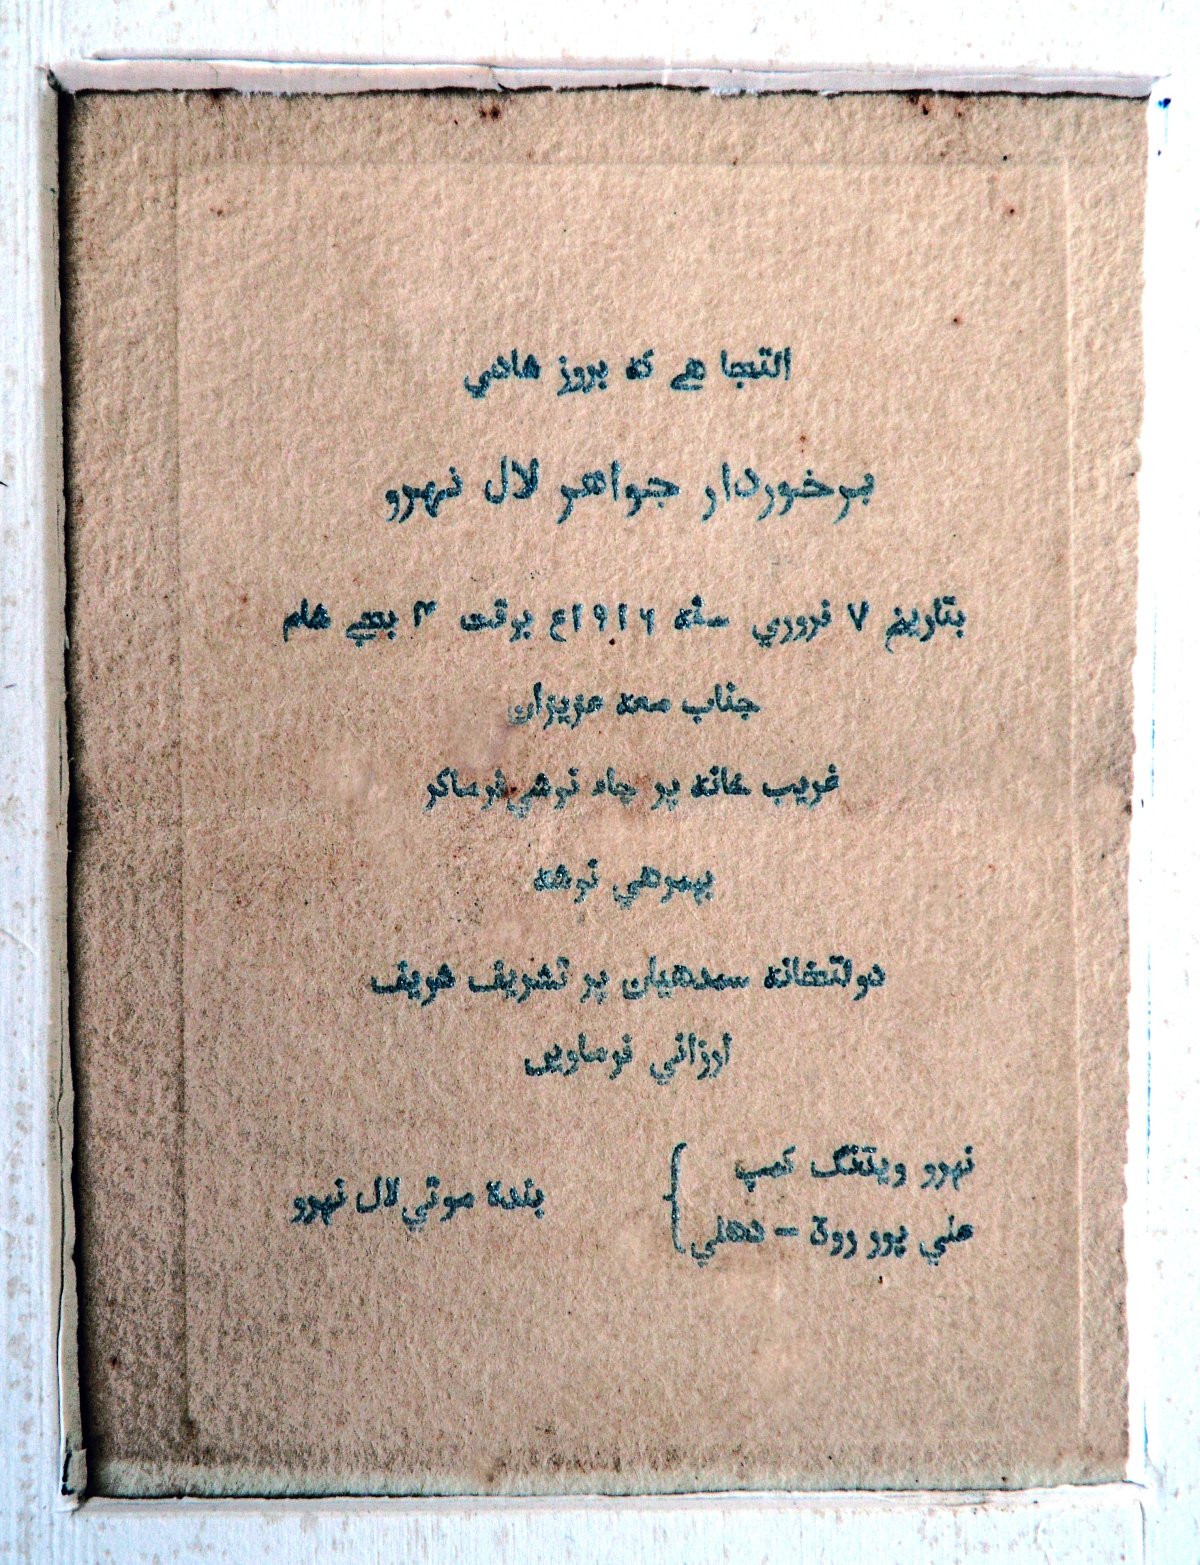 التجا هے که بروز شادي
برخوردار جواهر لال نهرو
بتاريخ ۷ فروري سنه ۱۹۱۶ع بوقت ۴ بجے شام
جناب معه عزيزان
غريب خانه پر چاء نوشي فرماکر
بهمرهي نوشه
دولتخانه سمدهيان پر تشريف شريف
ارزاني فرماويں
نهرو ويڈنگ کمپ
علي پور روڈ - دهلي
بنده موتي لال نهرو